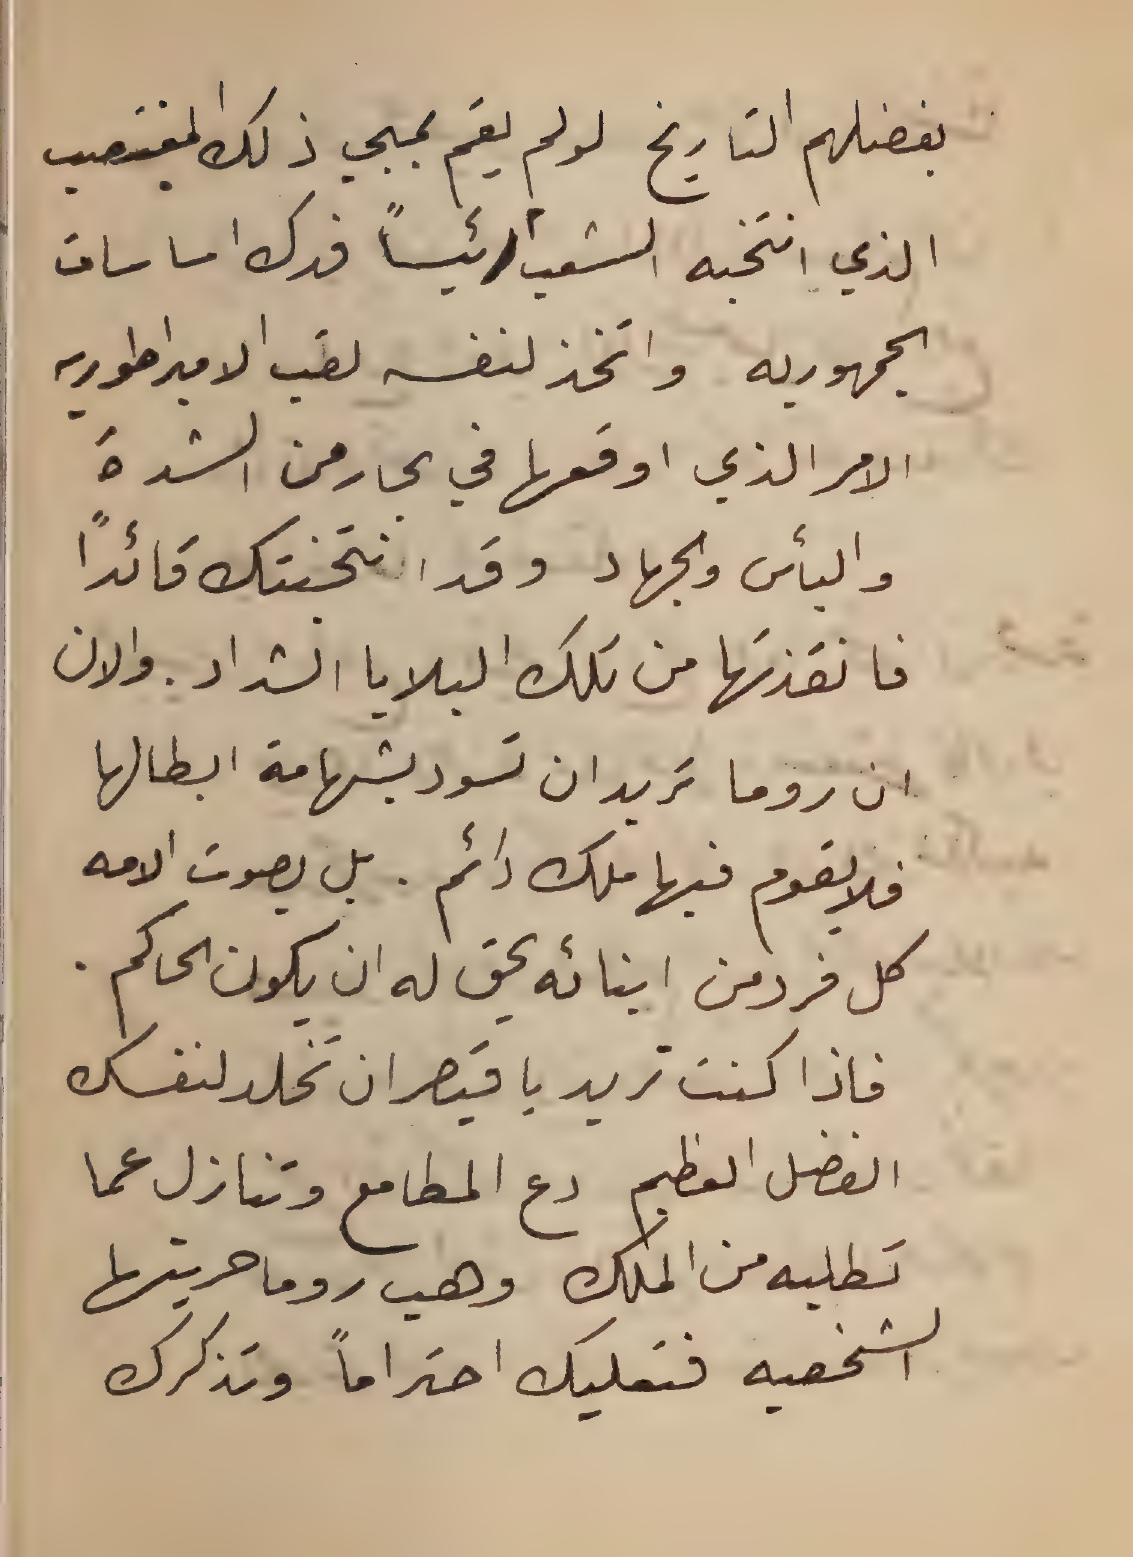 بفضلهم التاريخ لولم يقم بمبي ذلك المغتصب
الذي انتخبه الشعب رئيساً فدك اساسات
الجمهوريه واتخذ لنفسه لقب الامبراطوريه
الامر الذي اوقعها في بحار من الشدة
والبأس والجهاد وقد انتخبتك قائداً
فانقذتها من تلك البلايا الشداد . والان
ان روما تريد ان تسود بشهامة ابطالها
فلا يقوم فيها ملك دائم . بل بصوت الامه
كل فرد من ابنائه يحق له ان يكون الحاكم .
فاذا كنت تريد يا قيصر ان تخلد لنفسك
الفضل العظيم دع المطامع وتنازل عما
تطلبه من الملك وهب روما حريتها
الشخصيه فتعليك احتراماً وتذكرك